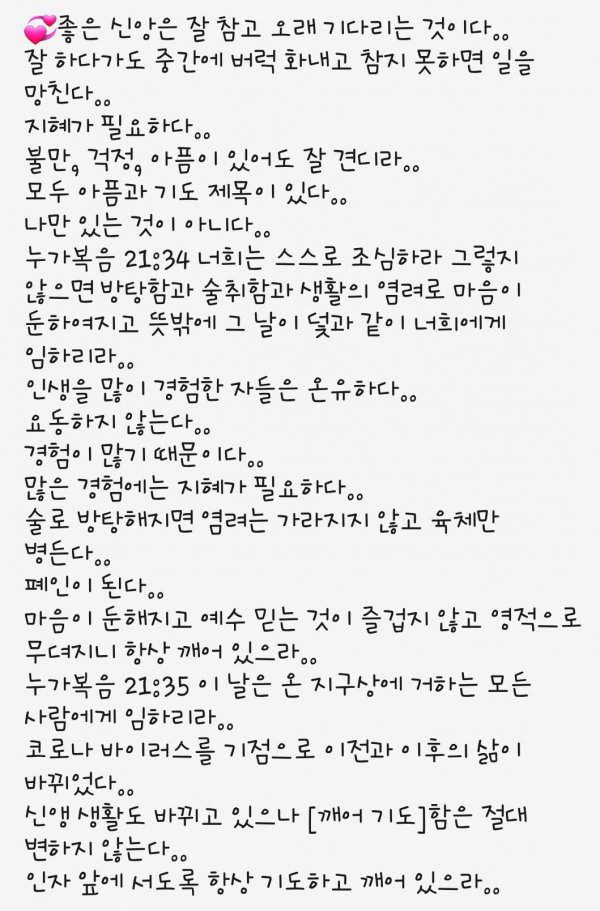 💞좋은 신앙은 잘 참고 오래 기다리는 것이다..
잘 하다가도 중간에 버럭 화내고 참지 못하면 일을
망친다..
지혜가 필요하다..
불만, 걱정, 아픔이 있어도 잘 견디라..
모두 아픔과 기도 제목이 있다..
나만 있는 것이 아니다..
누가복음 21:34 너희는 스스로 조심하라 그렇지
않으면 방탕함과 술취함과 생활의 염려로 마음이
둔하여지고 뜻밖에 그 날이 덫과 같이 너희에게
임하리라..
인생을 많이 경험한 자들은 온유하다..
요동하지 않는다..
경험이 많기 때문이다..
많은 경험에는 지혜가 필요하다..
술로 방탕해지면 염려는 가라지지 않고 육체만
병든다..
폐인이 된다..
마음이 둔해지고 예수 믿는 것이 즐겁지 않고 영적으로
무뎌지니 항상 깨어 있으라..
누가복음 21:35 이 날은 온 지구상에 거하는 모든
사람에게 임하리라..
코로나 바이러스를 기점으로 이전과 이후의 삶이
바뀌었다..
신앵 생활도 바뀌고 있으나 [깨어 기도]함은 절대
변하지 않는다..
인자 앞에 서도록 항상 기도하고 깨어 있으라..